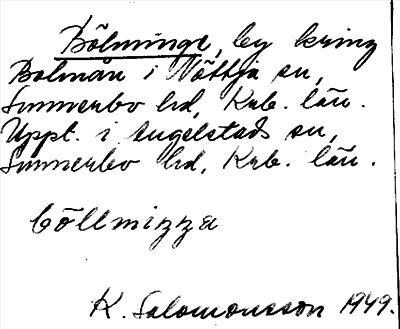 Bölminge, by kring
Bolmån i Nöttja sn,
Sunnerbo hd, Krb. län.
Uppt. i Angelstads sn,
Sunnerbo hd, Krb. län.
böllmizza
K. Salomonsson 1949.